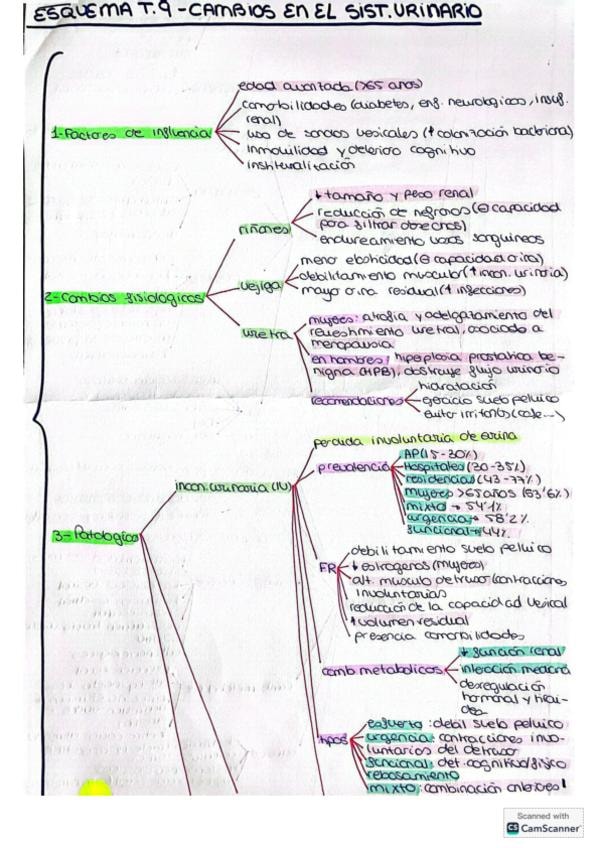 ESQUEMA T.9 - CAMBIOS EN EL SIST. URINARIO
1-Factores de influencia
edad avanzada (>65 años)
comorbilidades (diabetes, enf. neurologicas, insuf.
renal)
uso de sondas vesicales (↑ colonización bacteriana)
Inmovilidad y deterioro cognitivo
institucionalización
2-Cambios fisiologicos
riñones
↓ tamaño y peso renal
reducción de nefronas (⊖ capacidad
para filtrar desechos)
endurecimiento vasos sanguineos
vejiga
menor elasticidad (⊖ capacidad orina)
debilitamiento muscular (↑ incon. urinaria)
mayor orina residual (↑ infecciones)
uretra
mujeres: atrofia y adelgazamiento del
revestimiento uretral, asociado a
menopausia
en hombres: hiperplasia prostatica be-
nigna (HPB), obstruye flujo urinario
recomendaciones
hidratación
ejercicios suelo pelvico
evitar irritantes (cafe...)
3-Patologias
incon. urinaria (IU)
perdida involuntaria de orina
prevalencia
AP (15-30%)
Hospitales (30-35%)
residencias (43-77%)
mujeres >65 años (53'6%)
mixta → 54'1%
urgencia → 58'2%
funcional → 44%
FR
debilitamiento suelo pelvico
↓ estrogenos (mujeres)
alt. musculo detrusor (contracciones
involuntarias
reducción de la capacidad vesical
↑ volumen residual
presencia comorbilidades
camb metabolicos
↓ función renal
desregulación
hormonal y tiroi-
dea
tipos
esfuerzo: debil suelo pelvico
urgencia: contracciones invo-
luntarias del detrusor
funcional: det. cognitivo/fisico
rebosamiento
mixto: combinación
Scanned with
CS CamScanner